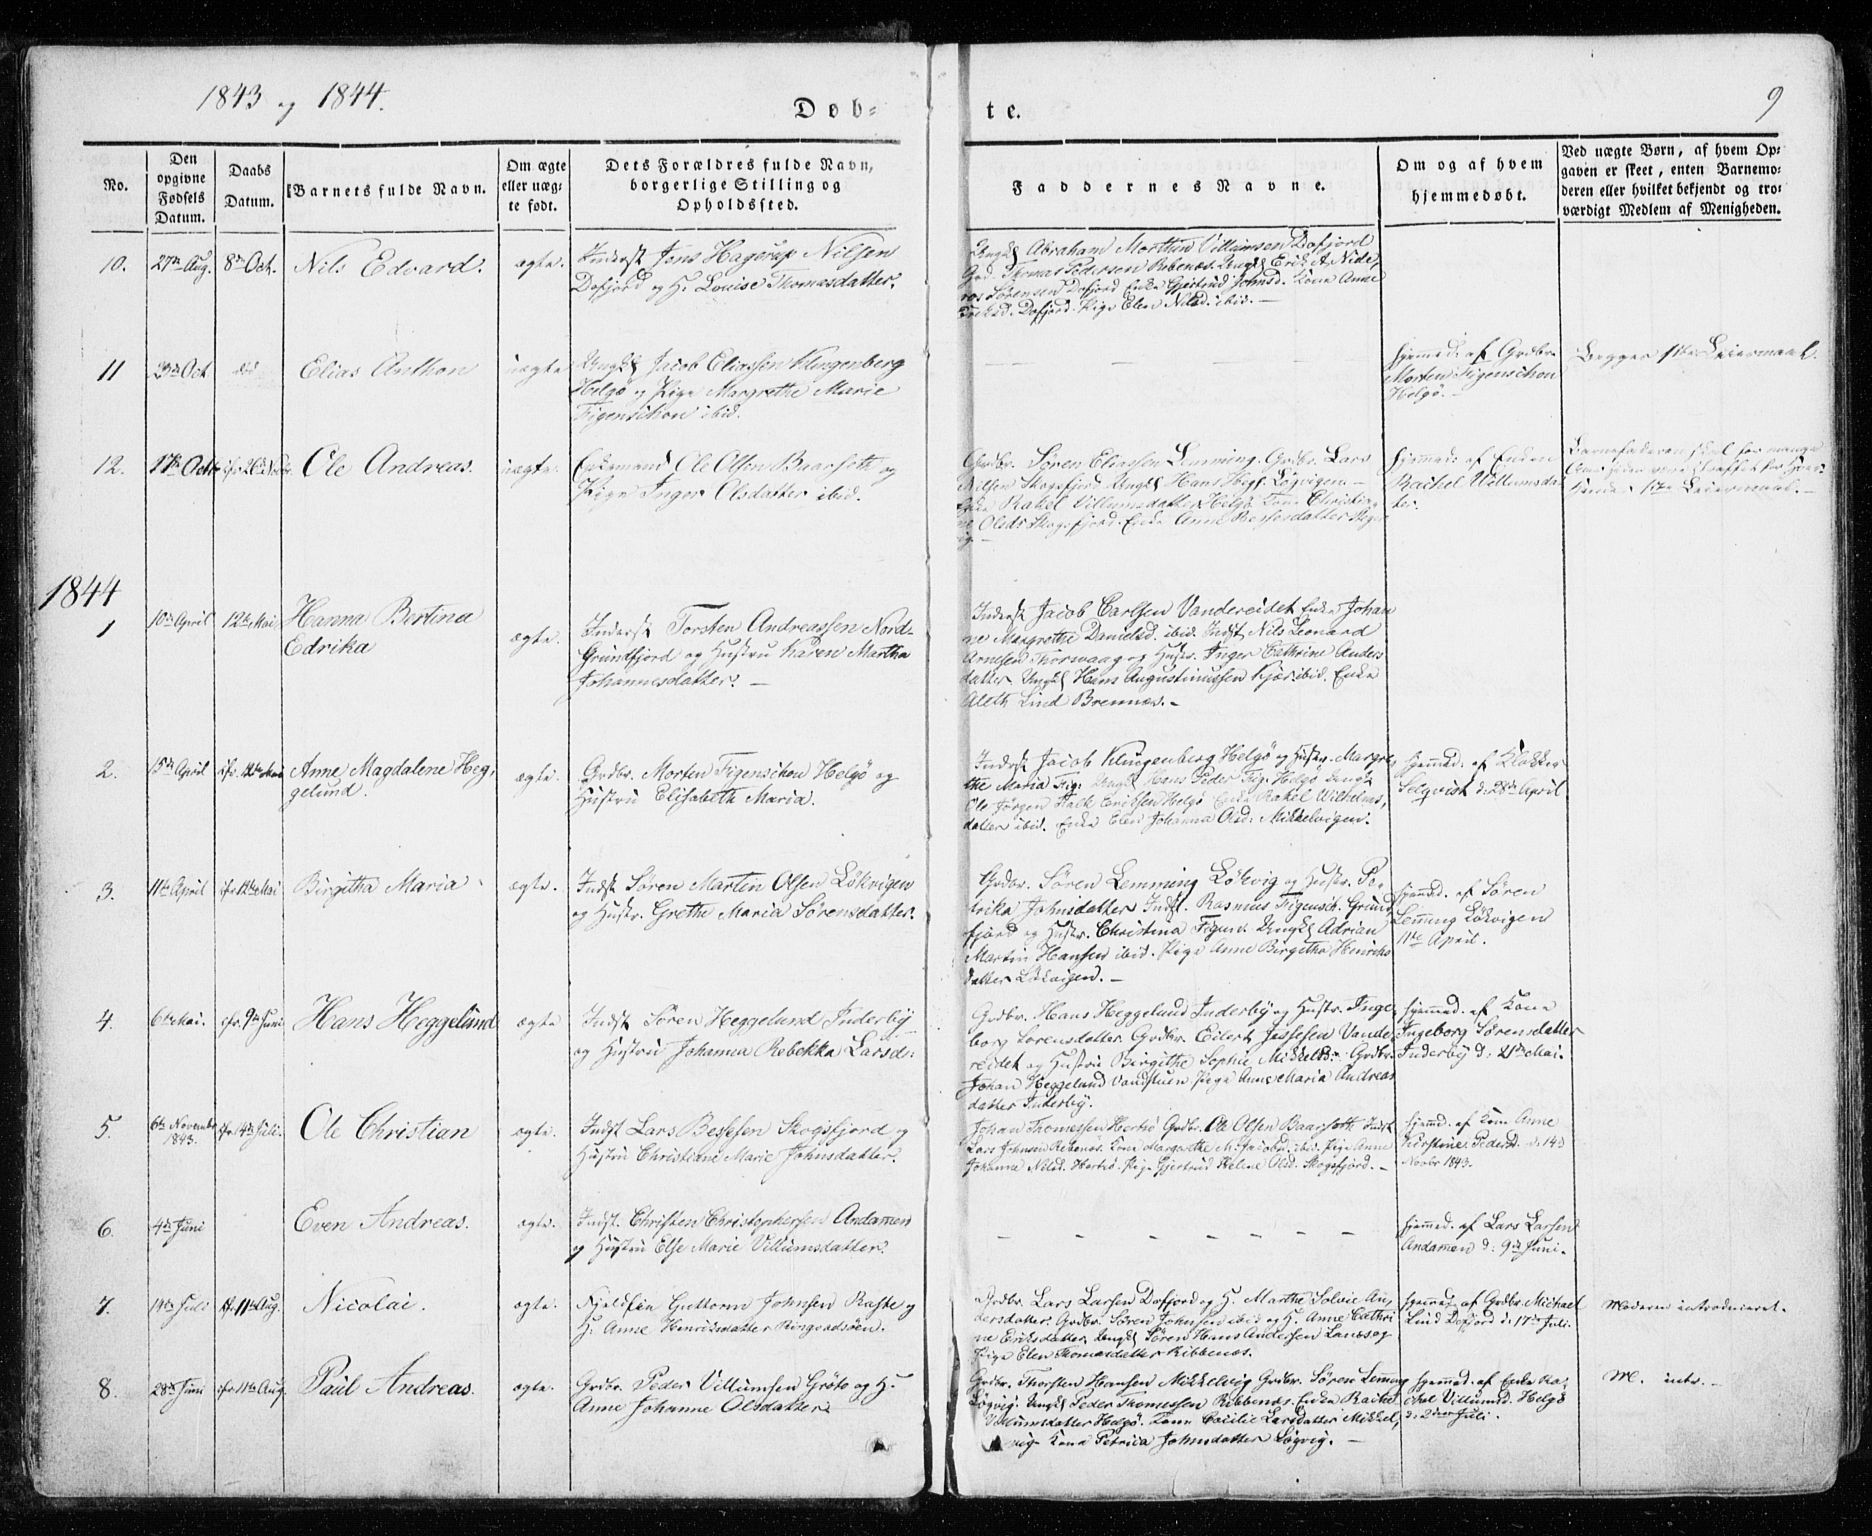 1843 og 1844.
Døb-
te.
9
No.
Den opgivne Fødsels Datum.
Daabs Datum.
Barnets fulde Navn.
Om ægte eller uæg- te født.
Dets Forældres fulde Navn, borgerlige Stilling og Opholdssted.
Faddernes Navne.
Om og af hvem hjemmedøbt.
Ved uægte Børn, af hvem Op-
gaven er skeet, enten Barnemo-
deren eller hvilket bekjendt og tro-
værdigt Medlem af Menigheden.
10. 27de Aug. 8de Oct. Nils Edvard. ægte. Inderst Jens Hagerup Nilsen
Dafjord og H. Louise Thomasdatter.
Ungk. Abraham Morthen Villumsen Dafjord
Gbd. Thomas Pedersen Rebenæs. Ungk. Erik A. Nide
ros Sørensen Dafjord Enke Gjertrud Johnsd. Kone Anne
Eriksd. Dafjord. Pige Elen Nilsd. ibid.
11 23de Oct Elias Anthon uægte Ungk. Jacob Eliassen Klingenberg
Helgø og Pige Margrethe Marie
Figenschou ibid.
hjemmed: af Grdbr.
Morten Figenschou
Helgø.
Begges 1ste Leiermaal.
12. 17de Octb. Ole Andreas. uægte. Enkemand Ole Olsen Baarseth og
Pige Inger Olsdatter ibid.
Grdbr. Søren Eliassen Lemming. Grdbr. Lars
Nilsen Skogsfjord. Ungk. Hans Heg. Løgvigen
Enke Rakel Villumsdatter Helgø. Kone Christi-
ne Olsdr. Skogsfjord. Enke Anne
hjemmed: af Enken
Rachel Villumsdat
ter.
Barnefaderen skal for mange
Aar siden være straffet for Hoer
Hendes 1ste Leiermaal.
1844
1 10de April 12te Mai Hanna Bertina
Edrika
ægte. Inderst Torsten Andreassen Nord-
Grundfjord og Hustru Karen Martha
Johannesdatter.
Inderst Jacob Carlsen Vandereidet Enke Johan
ne Margrethe Danielsd. ibid. Indst. Nils Leonard
Arnesen Thorsvaag og Hustr. Inger Cathrine Anders
datter. Ungk. Hans Augustinussen Kjær ibid. Enke
Aleth Lind Brennæs.
2. 15de April cfr. 12te Mai Anne Magdalene Heg-
gelund.
ægte. Grdbr. Morten Figenschou Helgø og
Hustru Elisabeth Maria.
Inderst Jacob Klingenberg Helgø og Hustr. Margre-
the Maria Fig. Ungk. Hans Peder Fig. Helgø Ungk
Ole Jørgen Falk Eriksen Helgø Enke Rakel Wilhelms-
datter ibid. Enke Elen Johanna Olsd: Mikkelvigen.
hjemmed. af Klokker
Selqvist d: 28de April
3. 11te April cfr. 12te Mai Birgitha Maria ægte. Indst Søren Martin Olsen Løkvigen
og Hustr. Grethe Maria Sørensdatter.
Grdbr. Søren Lemming Løkvig og Hustr. Pe-
trika Johnsdatter. Indst. Rasmus Figensch. Grund
fjord og Hustr. Christina Figen. Ungk. Adrian
Martin Hansen ibid. Pige Anne Birgitha Henriks
datter Løkvigen.
hjemmed. af Søren
Lemming Løkvigen
11te April.
4. 6te Mai. cfr. 9de Juni Hans Heggelund ægte Indst Søren Heggelund Inderby
og Hustru Johanna Rebekka Larsd:
Grdbr. Hans Heggelund Inderby og Hustr. Inge-
borg Sørensdatter. Grdbr. Eilert Jessesen Vande-
reidet og Hustru Birgithe Sophie Mikkelsd. Grdbr.
Johan Heggelund Vandstuen Pige Anne Maria Andreas
datter Inderby.
hjemmed. af Kone
Ingeborg Sørensdatter
Inderby d: 21de Mai.
5. 6te Novembr
1843.
cfr. 14de Juli. Ole Christian ægte. Indst Lars Bessesen Skogsfjord og
Hustru Christiane Marie Johnsdatter.
Johan Thomessen Hersø Grdbr. Ole Olsen Baarseth. Indst
Lars Johnsen Rebenæs. Kone Margrethe M. Jacobsd. ibid. Pige Anne
Johanna Nilsd. Hersø. Pige Gjertrud Helene Olsd. Skogsfjord.
hjemmd. af Kone Anne
Kirstine Pedersd. d: 14d
Novbr 1843.
6. 4de Juni Even Andreas. ægte. Indst. Christen Christophersen Andamen
og Hustru Else Marie Villumsdatter.
hjemmed. af Lars Larsen
Andamen d: 9de Juni.
7. 14de Juli cfr. 11te Aug. Nicolai. ægte. Fjeldfin Guttorm Johnsen Raste og
H. Anne Henriksdatter Ringvadsøen.
Grdbr. Lars Larsen Dafjord og H. Marthe Solvie An-
dersdatter. Grdbr. Søren Johnsen ibid og H. Anne Cathri
ne Eriksdatter. Ungk. Søren Hans Andersen Lanes og
Pige Elen Thomasdatter Ribbenæs.
hjemmed. af Grdbr. Michael
Lind Dafjord d: 17de Juli.
Moderen introduceret.
8. 28de Juni cfr. 11te Aug. Paul Andreas. ægte. Grdbr. Peder Villumsen Grøto og H.
Anne Johanne Olsdatter.
Grdbr. Thorsten Hansen Mikkelvig Grdbr. Søren Lemming
Løgvig. Ungk. Peder Thomassen Ribbenæs. Enke Rachel
Villumsdatter Helgø. Kone Cecilie Larsdatter Mikkel-
vig. Kone Petrica Johnsdatter Løgvig.
hjemmed. af Enke Ra-
chel Villumsd. Helgø
d: 2den Juli.
M. intr.